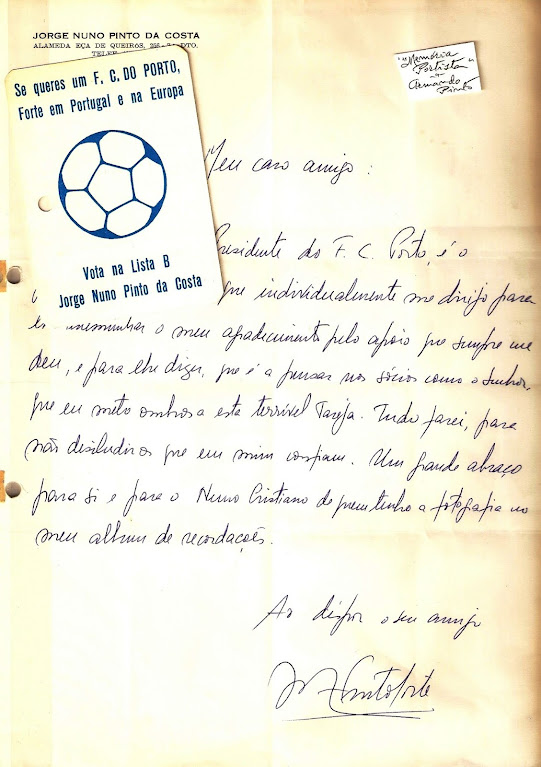 JORGE NUNO PINTO DA COSTA
ALAMEDA EÇA DE QUEIRÓS, DTO.
Se queres um F. C. DO PORTO,
Forte em Portugal e na Europa
Vota na Lista B
Jorge Nuno Pinto da Costa
"Memória
Portista"
Armando
Pinto
Meu caro amigo :
Presidente do F. C. Porto, é o
que individualmente me dirijo para
o meu agradecimento pelo apoio que sempre me
deu, e para lhe dizer, que é a pensar nos sócios como o senhor,
que eu meto ombros a esta terrível Tarefa. Tudo farei, para
não desiludir os que em mim confiam. Um grande abraço
para si e para o Nuno Cristiano de quem tenho a fotografia no
meu album de recordações.
Ao dispor o seu amigo